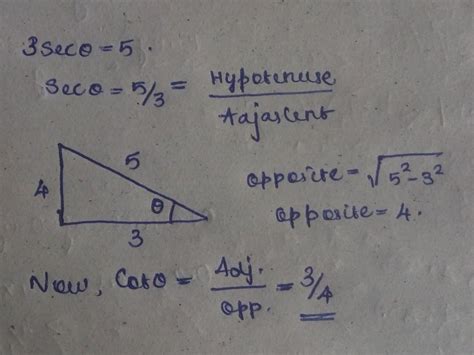 3 Sec θ = 5.
Sec θ = 5/3 = Hypotenuse / Adjascent
5
4
θ
3
opposite = √5²-3²
opposite = 4.
Now, Cot θ = Adj. / opp. = 3/4